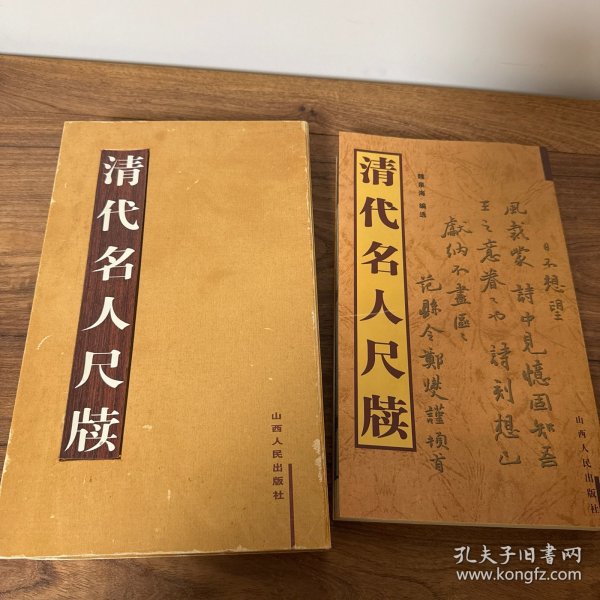 清代名人尺牍
山西人民出版社
清代名人尺牍
魏泉海 编选
日不想望
風裁蒙詩中見憶固知吾
王之意眷〻也詩刻想已
獻納不盡區〻
范縣令鄭燮謹頓首
山西人民出版社
孔夫子旧书网
www.kongfz.com